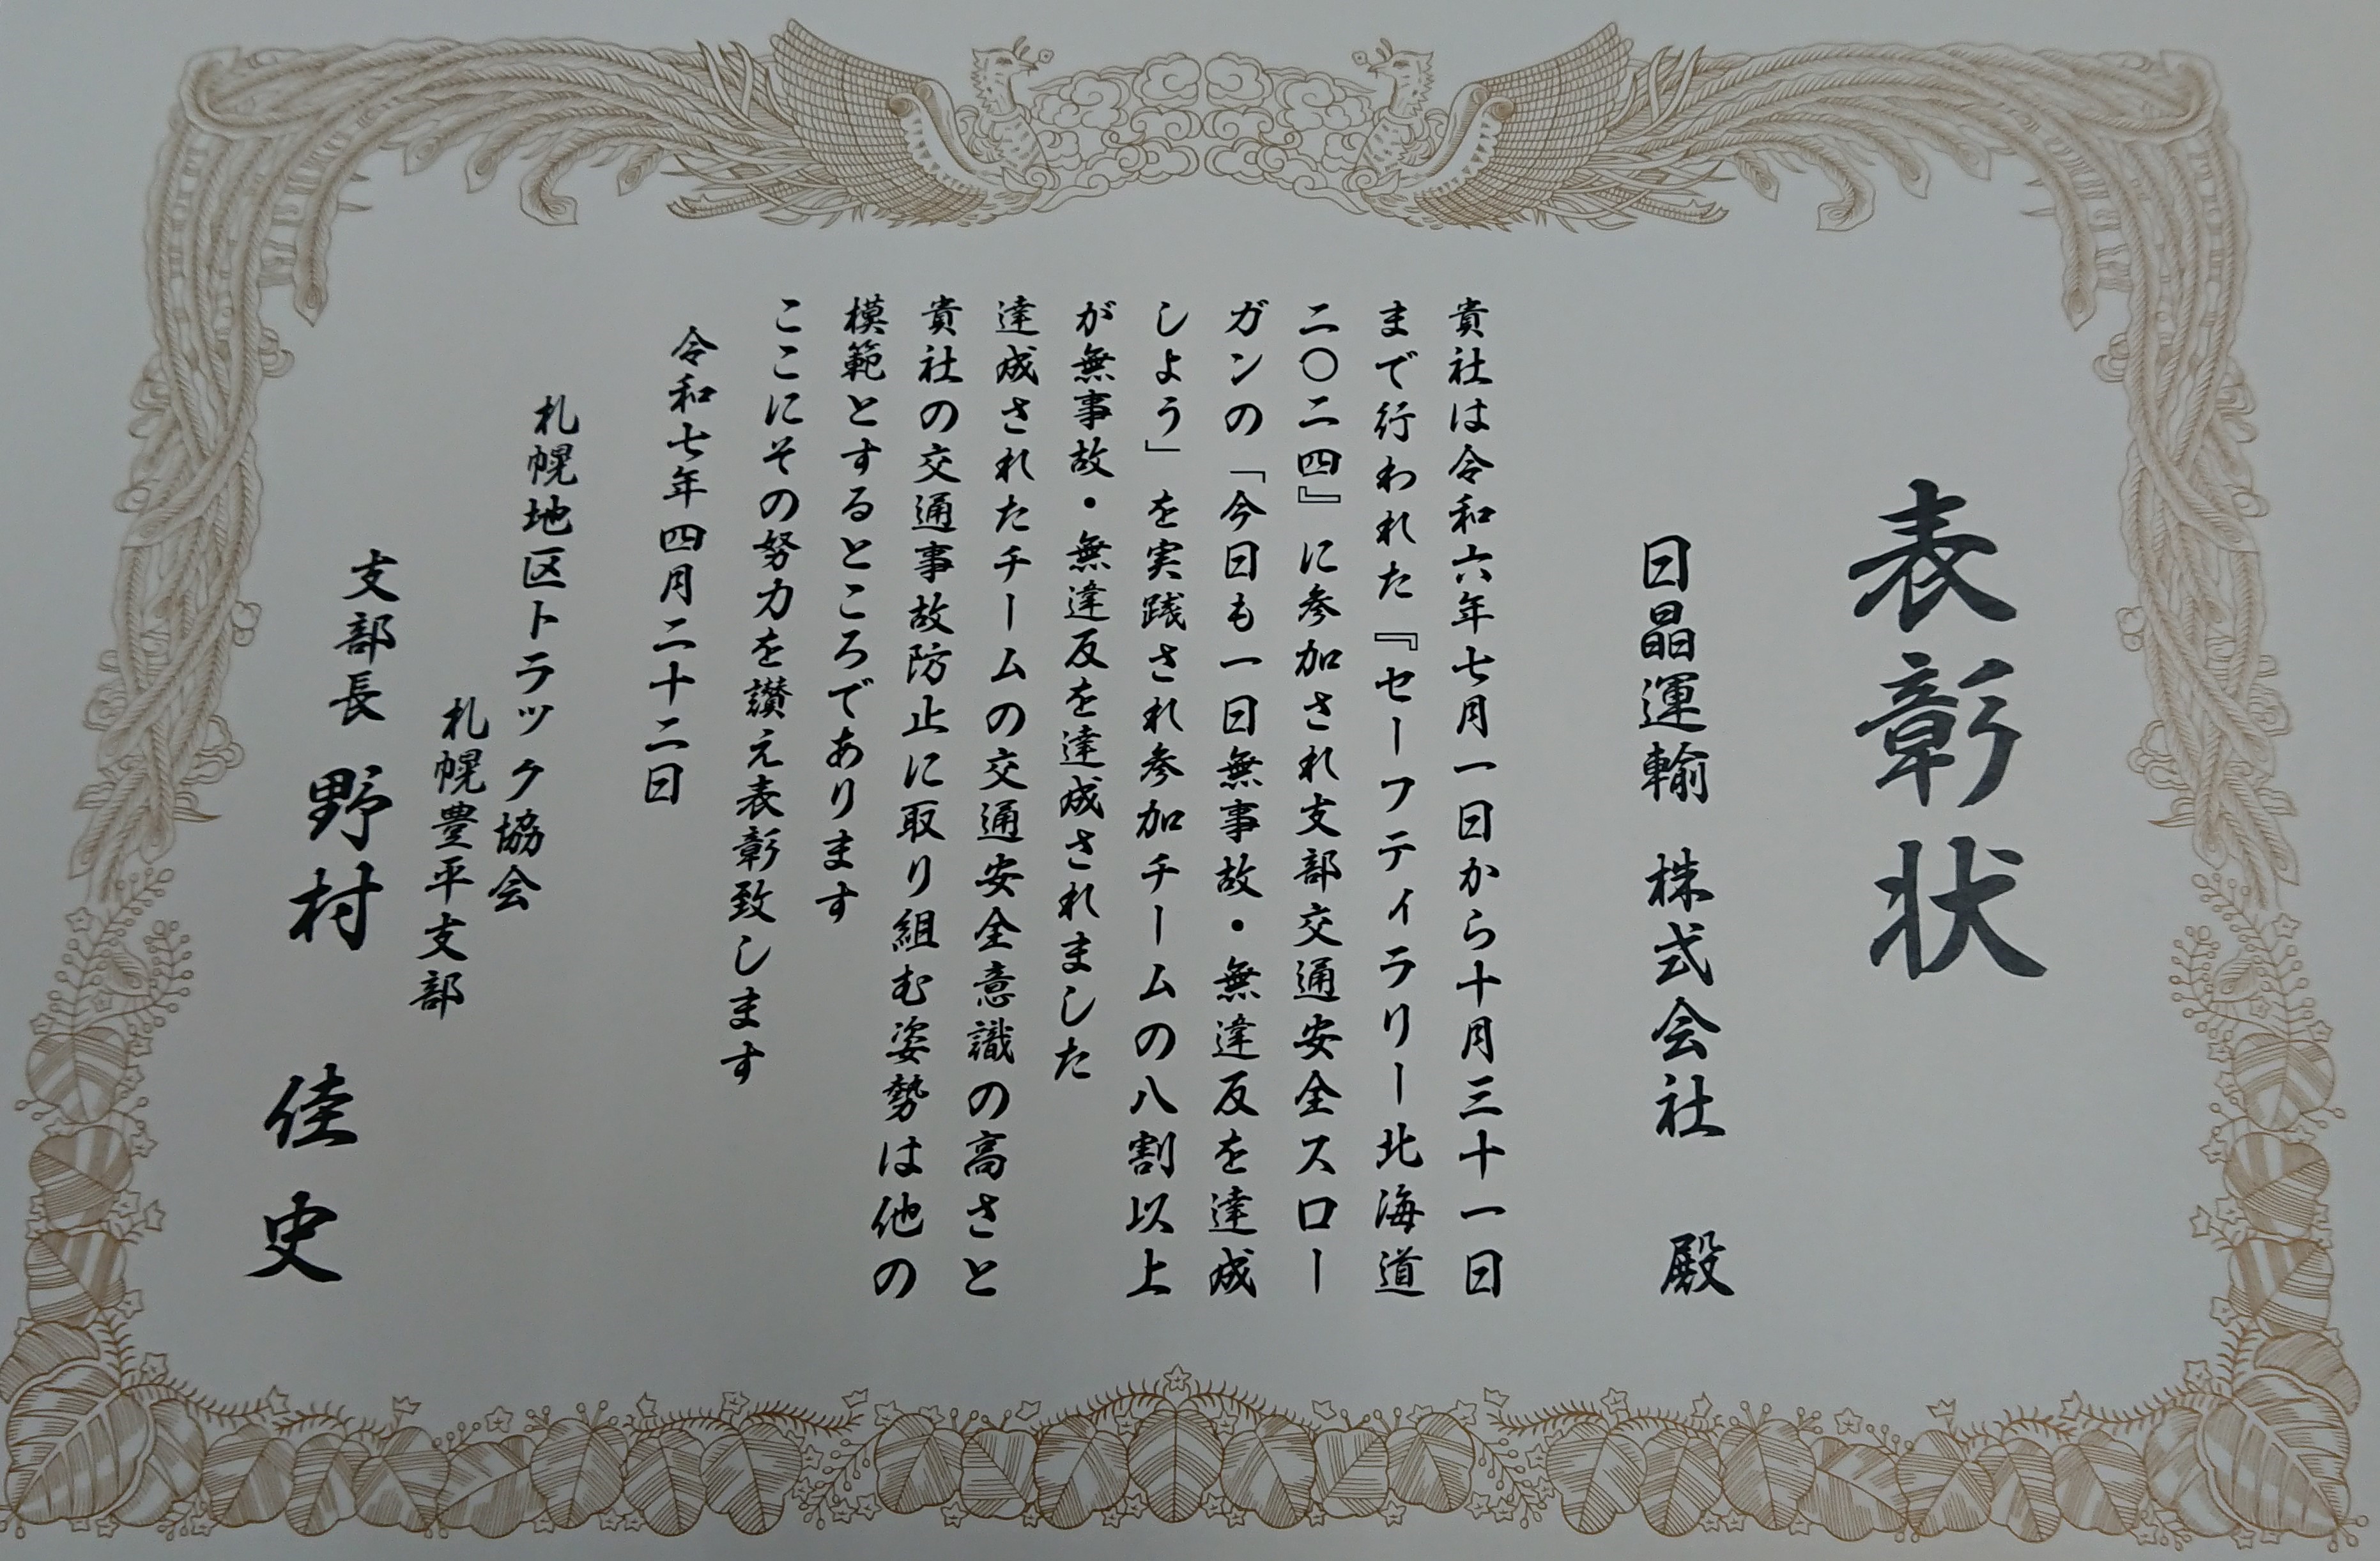 表彰状
日晶運輸 株式会社 殿
貴社は令和六年七月一日から十月三十一日
まで行われた『セーフティラリー北海道
二〇二四』に参加され支部交通安全スロー
ガンの「今日も一日無事故・無違反を達成
しよう」を実践され参加チームの八割以上
が無事故・無違反を達成されました
達成されたチームの交通安全意識の高さと
貴社の交通事故防止に取り組む姿勢は他の
模範とするところであります
ここにその努力を讃え表彰致します
令和七年四月二十二日
札幌地区トラック協会
札幌豊平支部
支部長 野村 佳史